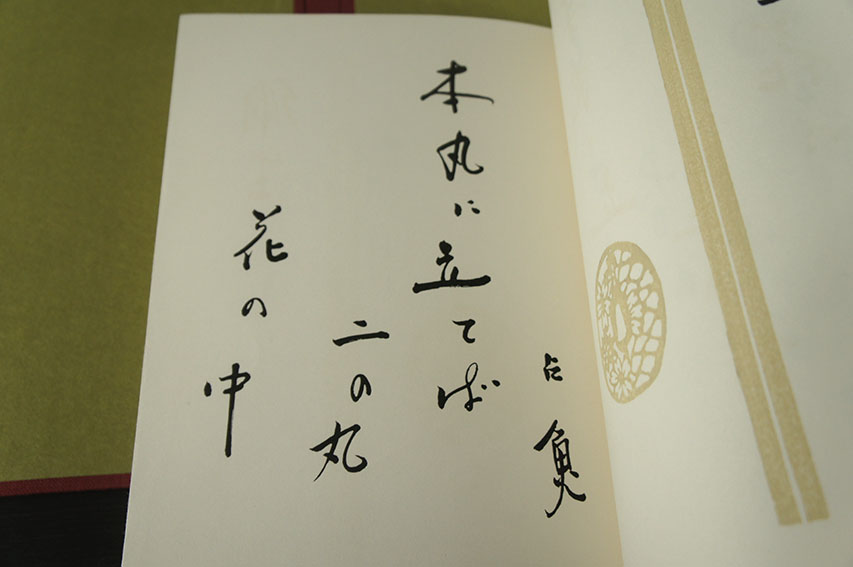 占魚
本丸に立てば
二の丸
花の中